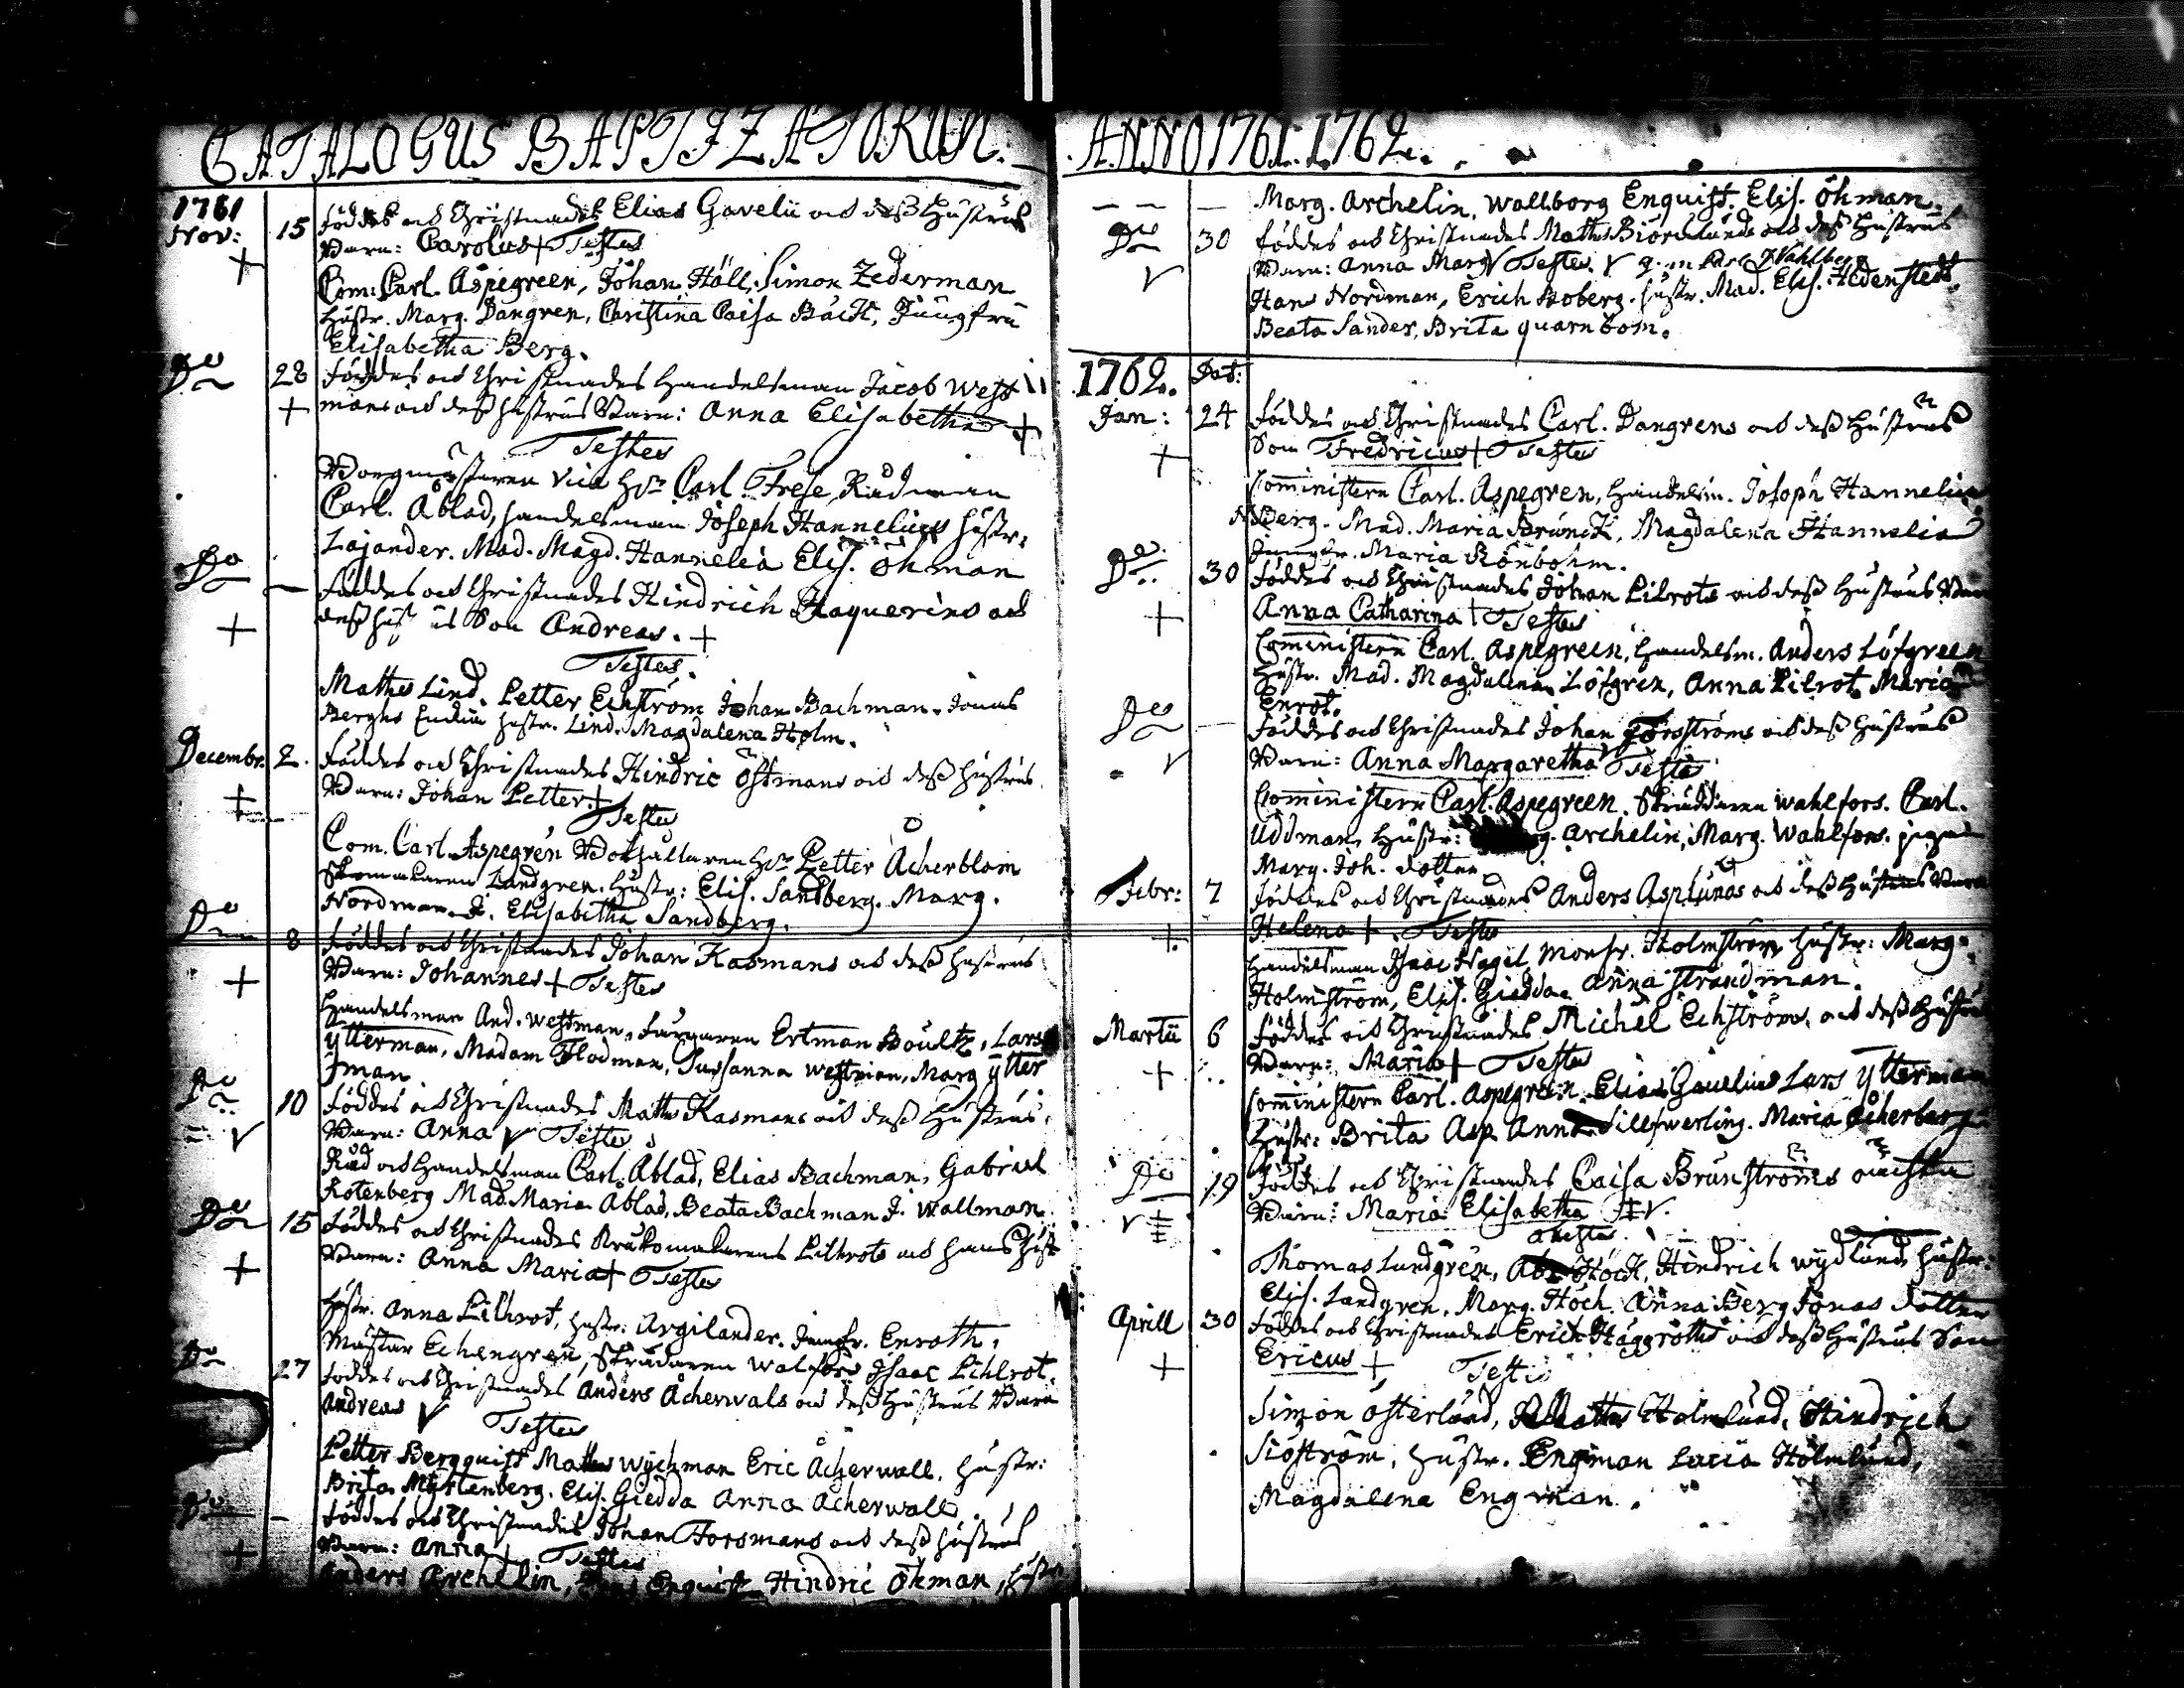 CATALOGUS BAPTIZATORUM.
1761
Nov: 15 föddes och Christnades Elias Gavelii och deß hustrus
Barn: Carolus + Testes
Com: Carl. Aspegreen, Johan Höll, Simon Zederman
hustr. Marg. Dangren, Christina Caisa Bäck, Jungfru
Elisabetha Berg.
Do 28 föddes och Christnades Handelsman Jacob West
+ mans och deß hustrus Barn: Anna Elisabetha +
Testes
Borgmästaren Hr Carl. Frese Rådman
Carl. Ablad, handelsman Joseph Hannelius hustr.
Lajander. Mad. Magd. Hannelia Elis. Öhman
Do — föddes och Christnades Hindrich Haquerins och
+ deß hustrus Son Andreas. +
Testes.
Mathes Lind. Petter Echström Johan Bachman. Jonas
Berghs hustr. Lind. Magdalena Holm.
Decembr: 2. föddes och Christnades Hindric Östmans och deß hustrus
+ Barn: Johan Petter. +
Testes
Com. Carl. Aspegren Bokhållaren Hr Petter Åcherblom
Skomakaren Landgren. Hustr: Elis. Sandberg. Marg.
Nordman. J. Elisabetha Sandberg.
Do 8 föddes och Christnades Johan Kasmans och deß hustrus
+ Barn: Johannes + Testes
Handelsman And. Westman, Färgaren Ertman Boultz, Lars
Ytterman, Madam Flodman, Susanna Westman, Marg Ytter
man
Do 10 föddes och Christnades Matts Kasmans och deß hustrus
Barn: Anna V Testes
Råd och Handelsman Carl. Ablad, Elias Bachman, Gabriel
Rotenberg Mad. Maria Ablad, Beata Bachman J. Wallman
Do 15 föddes och Christnades Krukomakarens Lilhrots och hans hust
+ Barn: Anna Maria + Testes
hustr. Anna Lilhrot, hustr: Argilander. Jungfr. Enroth,
Mästar Echengren, Skrädaren Walfors Isaac Lihlrot.
Do 27 föddes och Christnades Anders Åcherwals och deß hustrus Barn
Andreas V Testes
Petter Bergquist Matts Wychman Eric Åcherwall. hustr:
Brita Myrtenberg. Elis. Giedda Anna Acherwall.
Do — föddes och Christnades Johan Forsmans och deß hustrus
+ Barn: Anna + Testes
Anders Archelin, Enquist Hindric Öhman, hustr
ANNO 1761. 1762.
— — — Marg. Archelin, Wallborg Enquist. Elis. Öhman.
Do 30 föddes och Christnades Matts Biörcklunds och deß hustrus
V Barn: Anna Marg V Testes. V Carl Wahlberg
Hans Nordman, Erich Boberg. hustr. Mad. Elis. Hedenstedt.
Beata Sander, Brita quarnbom.
1762. Dat:
Jan: 24 föddes och Christnades Carl. Dangrens och deß hustrus
+ Son Fredricus + Testes
Comministern Carl. Aspegren, handelsm. Joseph Hannelius
Berg. Mad. Maria Brunck, Magdalena Hannelia
Jungfr. Maria Rönbohm.
Do 30 föddes och Christnades Johan Lilrots och deß hustrus Barn
+ Anna Catharina + Testes
Comministern Carl. Aspegreen, handelsm. Anders Löfgreen
hustr. Mad. Magdalena Löfgren, Anna Lilrot Maria
Enrot.
Do — föddes och Christnades Johan Forsströms och deß hustrus
V Barn: Anna Margaretha V Testes
Comministern Carl. Aspegreen. Skräddaren Wahlfors. Carl.
Uddman, hustr: Archelin, Marg. Wahlfors. pigan
Marg. Joh. dotter
Febr: 7 föddes och Christnades Anders Asplunds och deß hustrus Barn
+ Helena + Testes
Handelsman Isaac Nagel, Monsr. Holmström hustr: Marg.
Holmström, Elis. Giedda. Anna Strandman.
Martii 6 föddes och Christnades Michel Echströms och deß hustru
+ Barn: Maria + Testes
Comministern Carl. Aspegren. Elias Gavelius Lars Ytterman
hustr: Brita Asp. Anna Sillfwerling. Maria Åcherberg
Do 19 föddes och Christnades Caisa Brunströms oächta
V Barn: Maria Elisabetha V.
Testes.
Thomas Landgren, Höck, Hindrich Wydlund, hustr:
Elis. Landgren, Marg. Höck, Anna Berg Jonas dotter
Aprill 30 föddes och Christnades Erich Häggroths och deß hustrus Son
+ Ericus + Testes
Simon Österlund, Matts Holmlund, Hindrich
Siöström, hustr. Engman Lucia Holmlund,
Magdalena Engman.